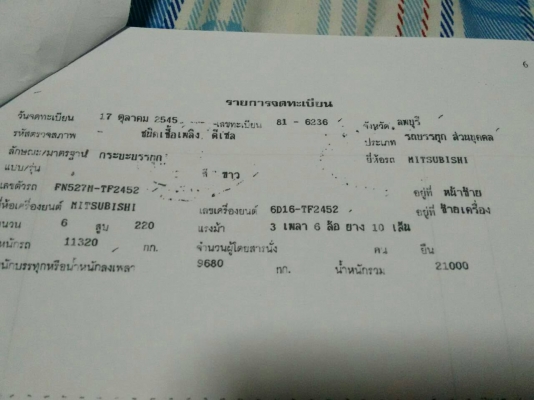 6
รายการจดทะเบียน
วันจดทะเบียน 17 ตุลาคม 2545 เลขทะเบียน 81 - 6236 จังหวัด ลพบุรี
รหัสตรวจสภาพ ชนิดเชื้อเพลิง ดีเซล ประเภท รถบรรทุก ส่วนบุคคล
ลักษณะ/มาตรฐาน กระบะบรรทุก ยี่ห้อรถ MITSUBISHI
แบบ/รุ่น สี ขาว
เลขตัวรถ FN527H-TF2452 อยู่ที่ หน้าซ้าย
ยี่ห้อเครื่องยนต์ MITSUBISHI เลขเครื่องยนต์ 6D16-TF2452 อยู่ที่ ซ้ายเครื่อง
จำนวน 6 สูบ 220 แรงม้า 3 เพลา 6 ล้อ ยาง 10 เส้น
น้ำหนักรถ 11320 กก. จำนวนผู้โดยสารนั่ง คน ยืน
น้ำหนักบรรทุกหรือน้ำหนักลงเพลา 9680 กก. น้ำหนักรวม 21000